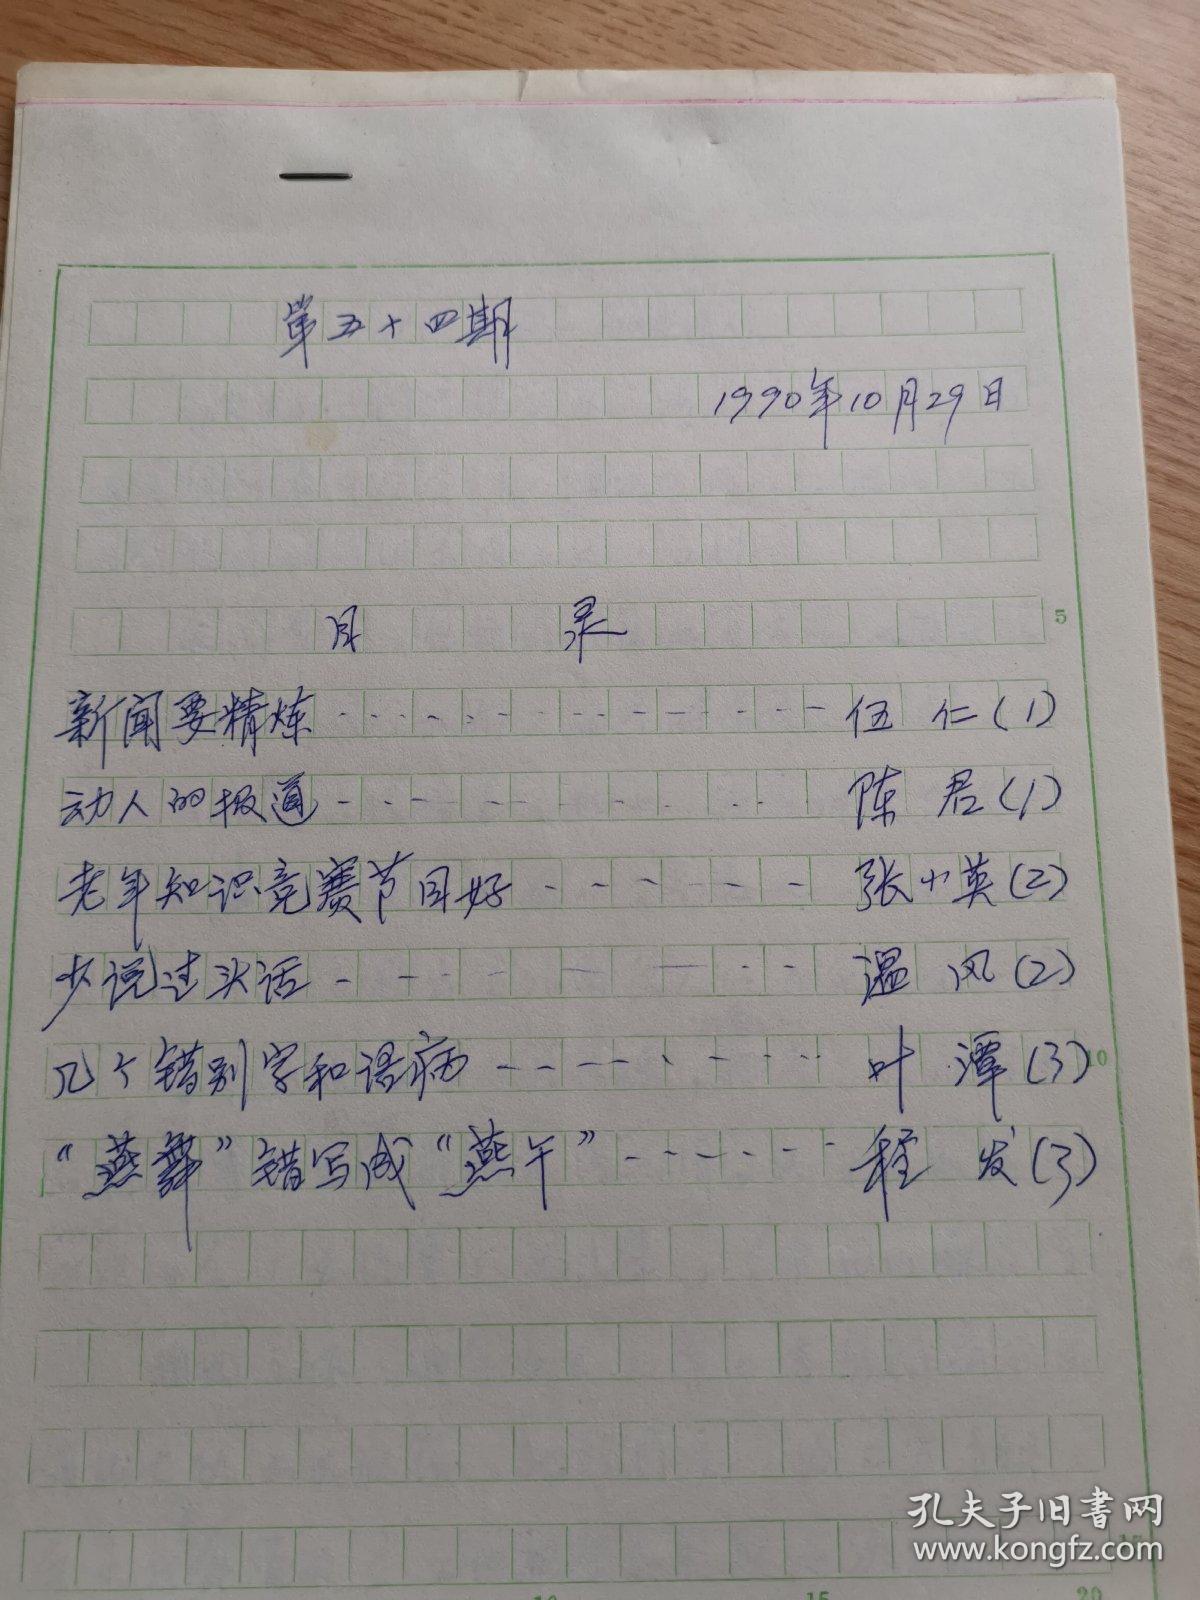 第五十四期
1990年10月29日
目 录
5
新闻要精炼·················伍 仁(1)
动人的报道·················陈 君(1)
老年知识竞赛节目好------张小英(2)
少说过头话----------温风(2)
几个错别字和语病---------叶 潭(3)
10
“燕舞”错写成“燕午”------程 发(3)
孔夫子旧书网
www.kongfz.com
15
20